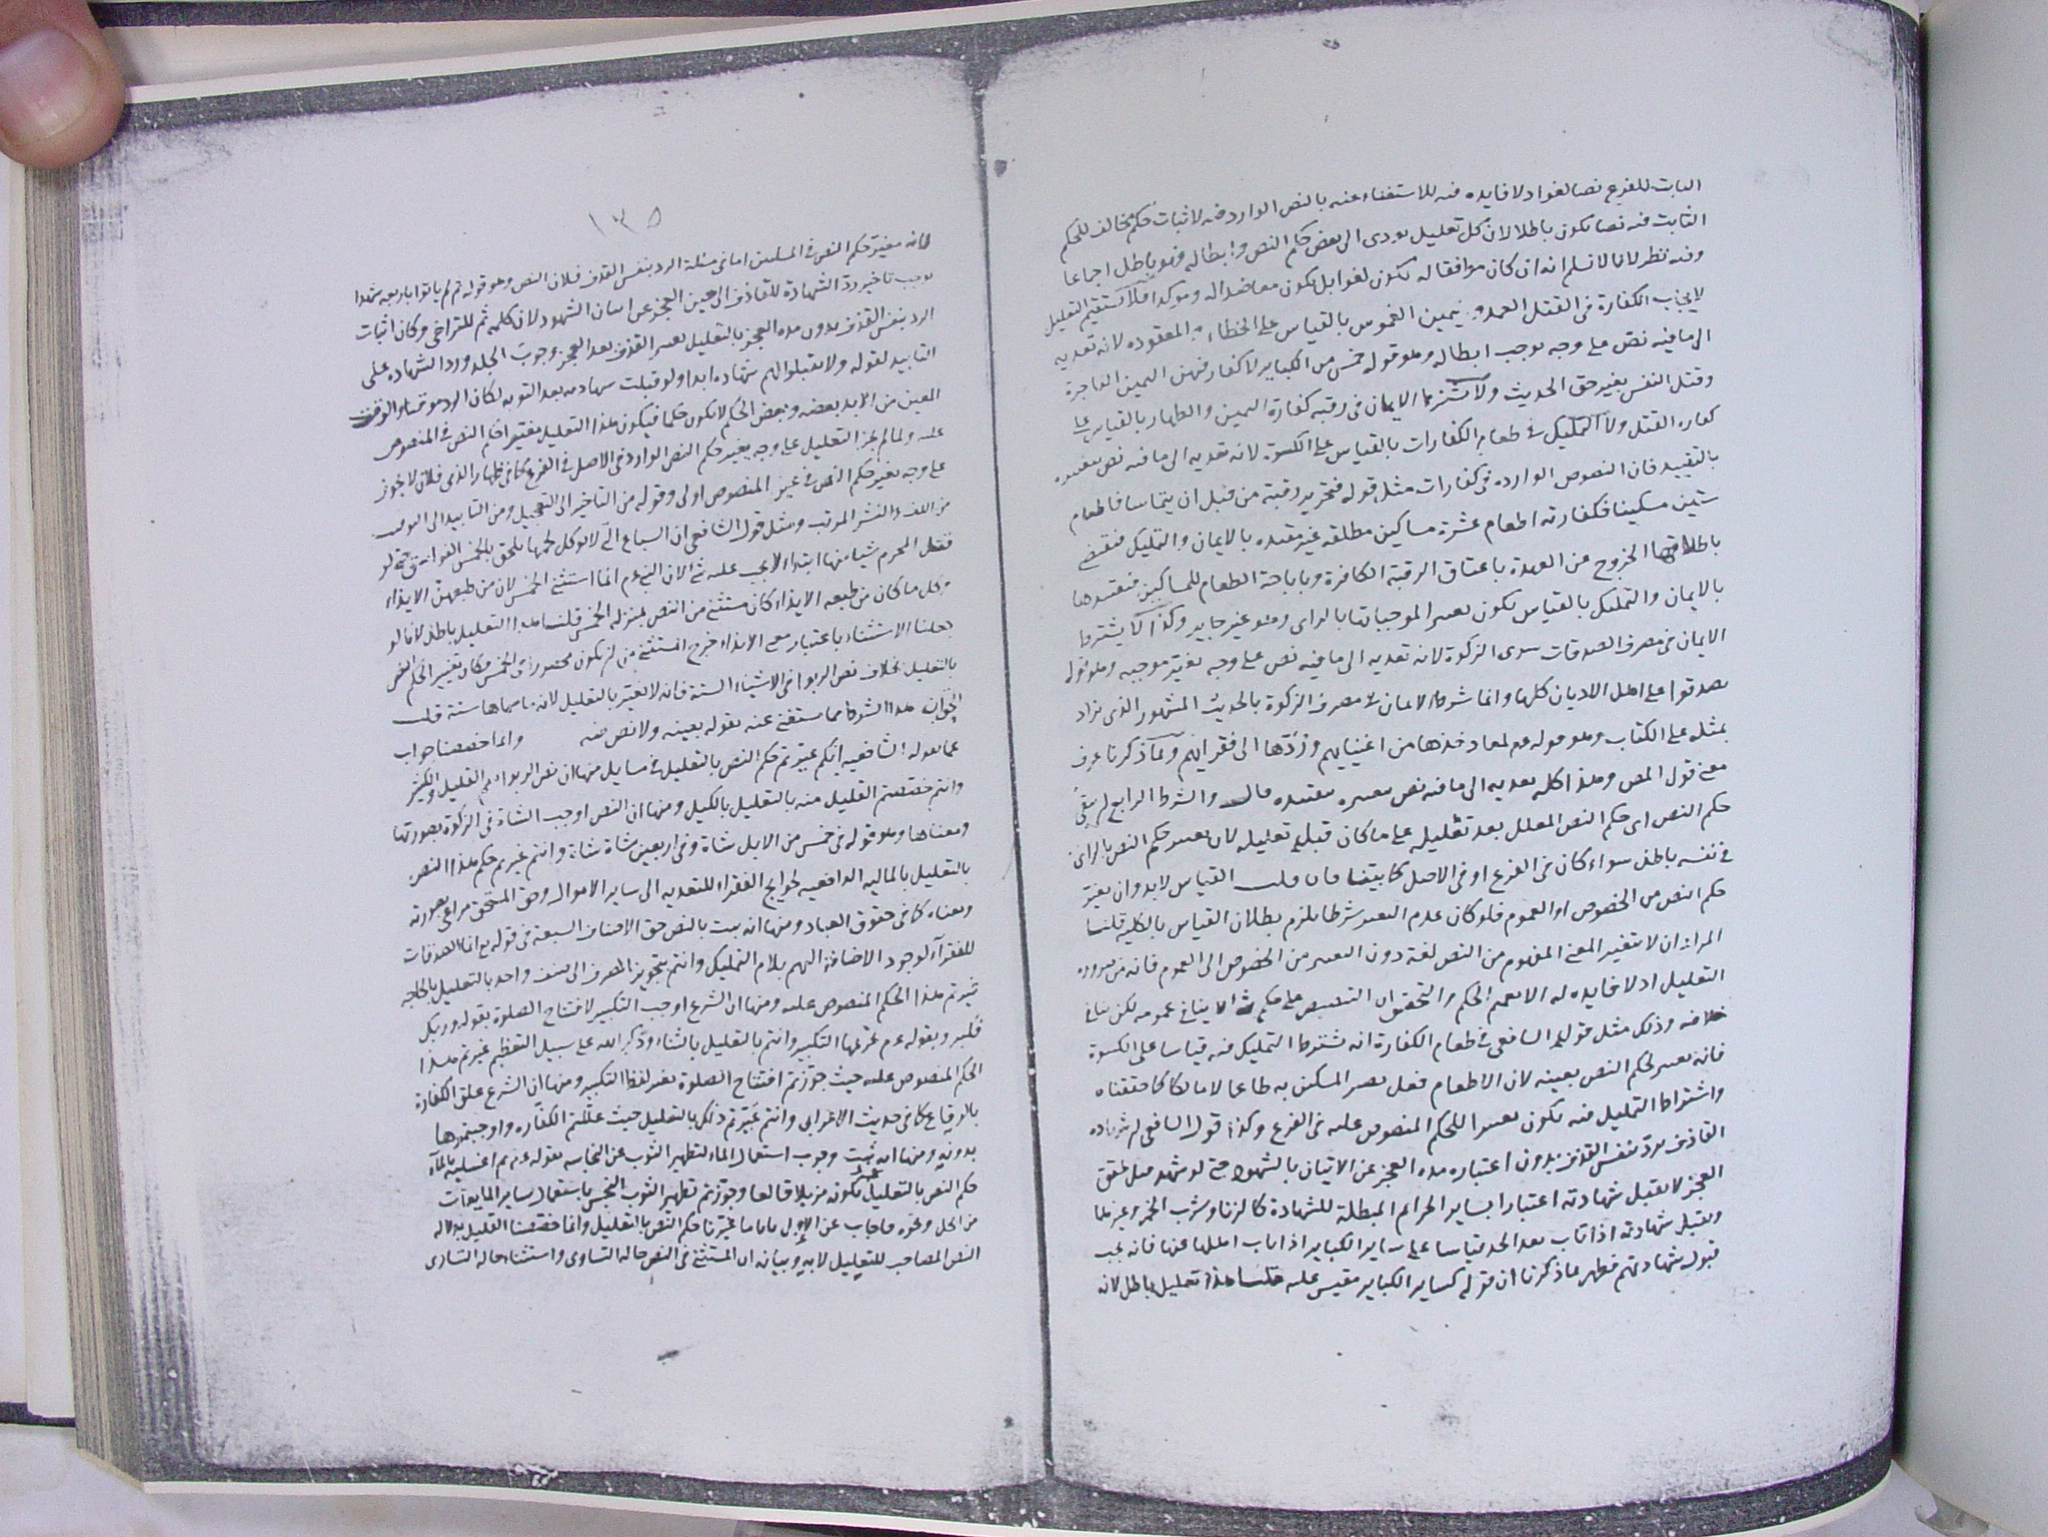 الثابت للفرع نصا لغوا اذ لا فايده فيه للاستغناء عنه بالنص الوارد فيه لاثبات حكم مخالف للحكم
الثابت فيه نصا يكون باطلا لان كل تعليل يودى الى بعض حكم النص وابطاله فهو باطل اجماعا
وفيه نظر لانا لا نسلم انه ان كان موافقا له يكون لغوا بل يكون معاضدا له وموكدا فلا يستقيم التعليل
لايجاب الكفارة فى القتل العمد و يمين الغموس بالقياس على الخطاء و المعقوده لانه تعديه
الى ما فيه نص على وجه يوجب ابطاله وهو قوله خمس من الكباير لا كفارفيهن اليمين الفاجرة
وقتل النفس بغير حق الحديث ولا شرط الايمان فى رقبه كفارة اليمين والظهار بالقياس على
كفاره القتل ولا التمليك فى طعام الكفارات بالقياس على الكسوة لانه تعديه الى ما فيه نص بتغييره
بالتقييد فان النصوص الوارده فى كفارات مثل قوله فتحرير رقبة من قبل ان يتماسا فاطعام
ستين مسكينا فكفارته اطعام عشرة مساكين مطلقه غير مقيده بالايمان والتمليك فيقتضى
باطلاقها الخروج عن العهدة باعتاق الرقبة الكافرة وباباحة الطعام للمساكين فتقييدها
بالايمان والتمليك بالقياس يكون تغييرا لموجباتها بالراى وهو غير جايز وكذا لا يشترط
الايمان فى مصرف الصدقات سوى الزكوة لانه تعديه الى ما فيه نص على وجه يغير موجبه وهو قوله
تصدقوا على اهل الاديان كلها وانما شرط الايمان فى مصرف الزكوة بالحديث المشهور الذى يزاد
بمثله على الكتاب وهو قوله عم لمعاذ خذها من اغنيايهم وردها الى فقرايهم وبما ذكرنا عرف
معنى قول المص وهذا كله تعديه الى ما فيه نص بتغييره بتقييده قال والشرط الرابع ان يبقى
حكم النص اى حكم النص المعلل بعد تعليله على ما كان قبل تعليله لان تغيير حكم النص بالراى
فى نفسه باطل سواء كان فى الفرع او فى الاصل كما بينا فان قلت القياس لابد وان يغير
حكم النص من الخصوص الى العموم فلو كان عدم التغيير شرطا يلزم بطلان القياس بالكلية قلنا
المراد ان لا يتغير المعنى المفهوم من النص لغة دون التغيير من الخصوص الى العموم فانه من ضرورة
التعليل اذ لا فايده له الا تعميم الحكم والتحقق ان التنصيص على حكم شئ لا ينافى عمومه لكن ينافى
خلافه وذلك مثل قول الشافعى فى طعام الكفارة انه يشترط التمليك فيه قياسا على الكسوة
فانه تغيير لحكم النص بعينه لان الاطعام فعل يصير المسكين به طاعما لا مالكا كما حققناه
واشتراط التمليك فيه يكون تغييرا للحكم المنصوص عليه فى الفرع وكذا قول الشافعى ان شهاده
القاذف ترد بنفس القذف بدون اعتبار مده العجز عن الاتيان بالشهود حتى لو شهد قبل تحقق
العجز لا تقبل شهادته اعتبارا بساير الجرائم المبطلة للشهادة كالزنا وشرب الخمر وغيرهما
وتقبل شهادته اذا تاب بعد الحد قياسا على ساير الكباير اذا تاب اهلها عنها فانه يجب
قبول شهادتهم فظهر بما ذكرنا ان قوله كساير الكباير مقيس عليه قلنا هذا تعليل باطل لانه
١٣٥
لانه مغير حكم النص فى المسلمين اما فى مسئلة الرد بنفس القذف فلان النص وهو قوله ثم لم ياتوا باربعه شهدا
يوجب تاخير رد الشهادة للقاذف الى حين العجز عن اتيان الشهود لان كلمه ثم للتراخى وكان اثبات
الرد بنفس القذف بدون مده العجز بالتعليل تغيير القذف بعد العجز وجوب الجلد ورد الشهاده على
التابيد لقوله ولا تقبلوا لهم شهاده ابدا ولو قبلت شهادته بعد التوبه لكان الرد موقتا والوقت
المعين من الابد بعضه وبعض الحكم لا يكون حكما فيكون هذا التعليل مغيرا حكم النص فى المنصوص
عليه ولما لم يجز التعليل على وجه يغير حكم النص الوارد فى الاصل فى الفرع كما فى ظهار الذمى فلان لا يجوز
على وجه يغير حكم النص فى عين المنصوص اولى وقوله من التاخير الى التعجيل ومن التابيد الى التوقيت
من اللف والنشر المرتب ومثل قول الشافعى ان السباع التى لا يوكل لحمها يلحق بالخمس الفواسق حتى لو
قتل المحرم شيا منها ابتداء لا يجب عليه شى لان النبى عم انما استثنى الخمس لان من طبعهن الايذاء
وكل ما كان من طبعه الايذاء كان مستثنى من النص بمنزله الخمس قلنا هذا التعليل باطل لانا لو
جعلنا الاستثناء باعتبار معنى الايذاء خرج المستثنى من ان يكون محصورا فى الخمس فكان تغيير الحكم النص
بالتعليل بخلاف نص الربوا فى الاشياء الستة فانه لا تغير بالتعليل لانه ما سماها ستة قلت
الجواب هذا الشرط مما يستغنى عنه بقوله بعينه ولا نص فيه وانما خصصنا جواب
عما يقوله الشافعيه انكم غيرتم حكم النص بالتعليل فى مسايل منها ان نص الربوا يعم القليل والكثير
وانتم خصصتم القليل منه بالتعليل بالكيل ومنها ان النص اوجب الشاة فى الزكوة بصورتها
ومعناها وهو قوله فى خمس من الابل شاة وفى اربعين شاة شاة وانتم غيرتم حكم هذا النص
بالتعليل بالمالية الدافعيه لحوايج الفقراء للتعديه الى ساير الاموال وحق المستحق مراعى بصورته
ومعناه كما فى حقوق العباد ومنها انه ثبت بالنص حق الاصناف السبعة فى قوله تع انما الصدقات
للفقراء لوجود الاضافة اليهم بلام التمليك وانتم بتجويز الصرف الى صنف واحد بالتعليل بالحاجه
غيرتم هذا الحكم المنصوص عليه ومنها ان الشرع اوجب التكبير لافتتاح الصلوة بقوله وربك
فكبر وبقوله عم تحريمها التكبير وانتم بالتعليل بالثناء وذكر الله على سبيل التعظيم غيرتم هذا
الحكم المنصوص عليه حيث جوزتم افتتاح الصلوة بغير لفظ التكبير ومنها ان الشرع علق الكفارة
بالوقاع كما فى حديث الاعرابى وانتم غيرتم ذلك بالتعليل حيث عللتم الكفاره واوجبتموها
بدونه ومنها انه ثبت وجوب استعمال الماء لتطهير الثوب عن النجاسه بقوله عم ثم اغسليه بالماء
حكم النص بالتعليل بكونه مزيلا قالعا وجوزتم تطهير الثوب النجس باستعمال ساير المايعات
من الخل ونحوه فاجاب عن الاول ما غيرنا حكم النص بالتعليل وانما خصصنا القليل بدلاله
النص المصاحب للتعليل لا به وبيانه ان المستثنى فى النص حاله التساوى واستثناء حاله التساوى